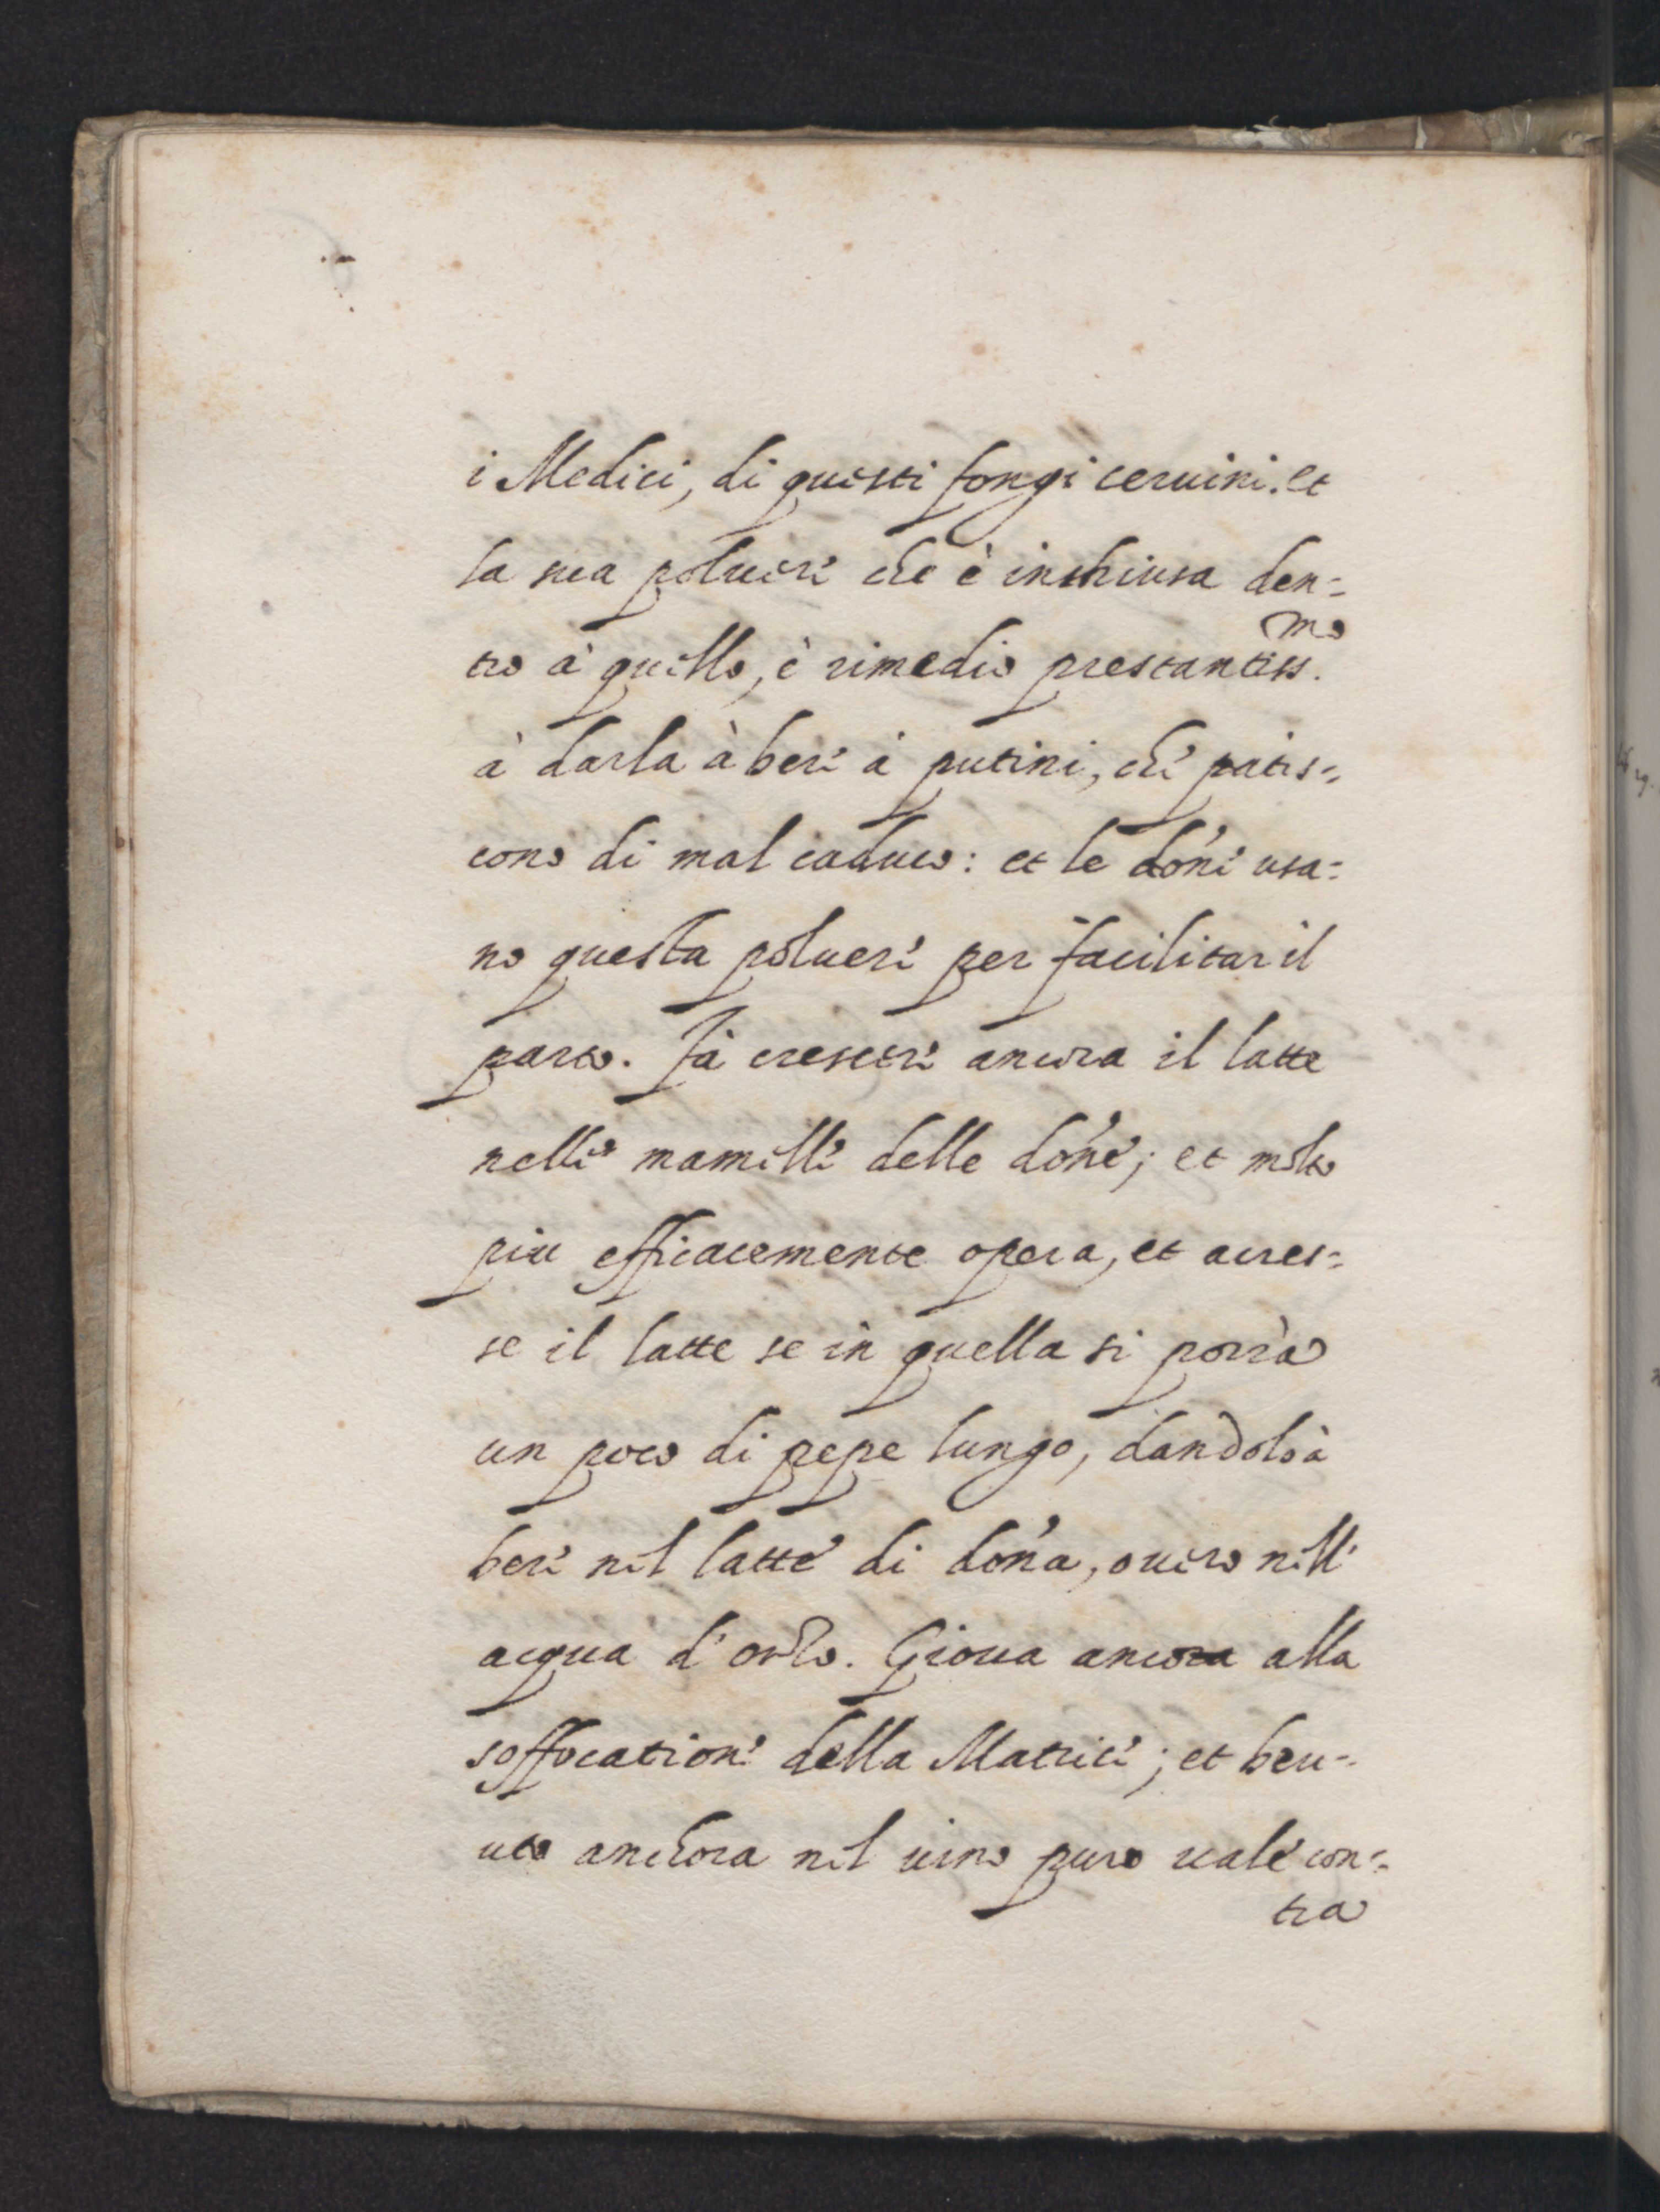 i Medici, di questi fongi ceruini. et
la sua poluere che è inchiusa den=
tro à quello, è rimedio prestantiss.mo
à darla à bere à putini, che patis=
cono di mal caduco: et le doñe usa=
no questa poluere per facilitar il
parto. Fà crescere ancora il latte
nelle mamille delle doñe; et molto
piu efficacemente opera, et acres=
se il latte se in quella si porrà
un poco di pepe lungo, dandolo à
bere nel latte di doña, ouero nell'
acqua d'orzo. Gioua ancora alla
soffocatione della Matrice; et beu=
uto anchora nel uino puro uale con=
tra